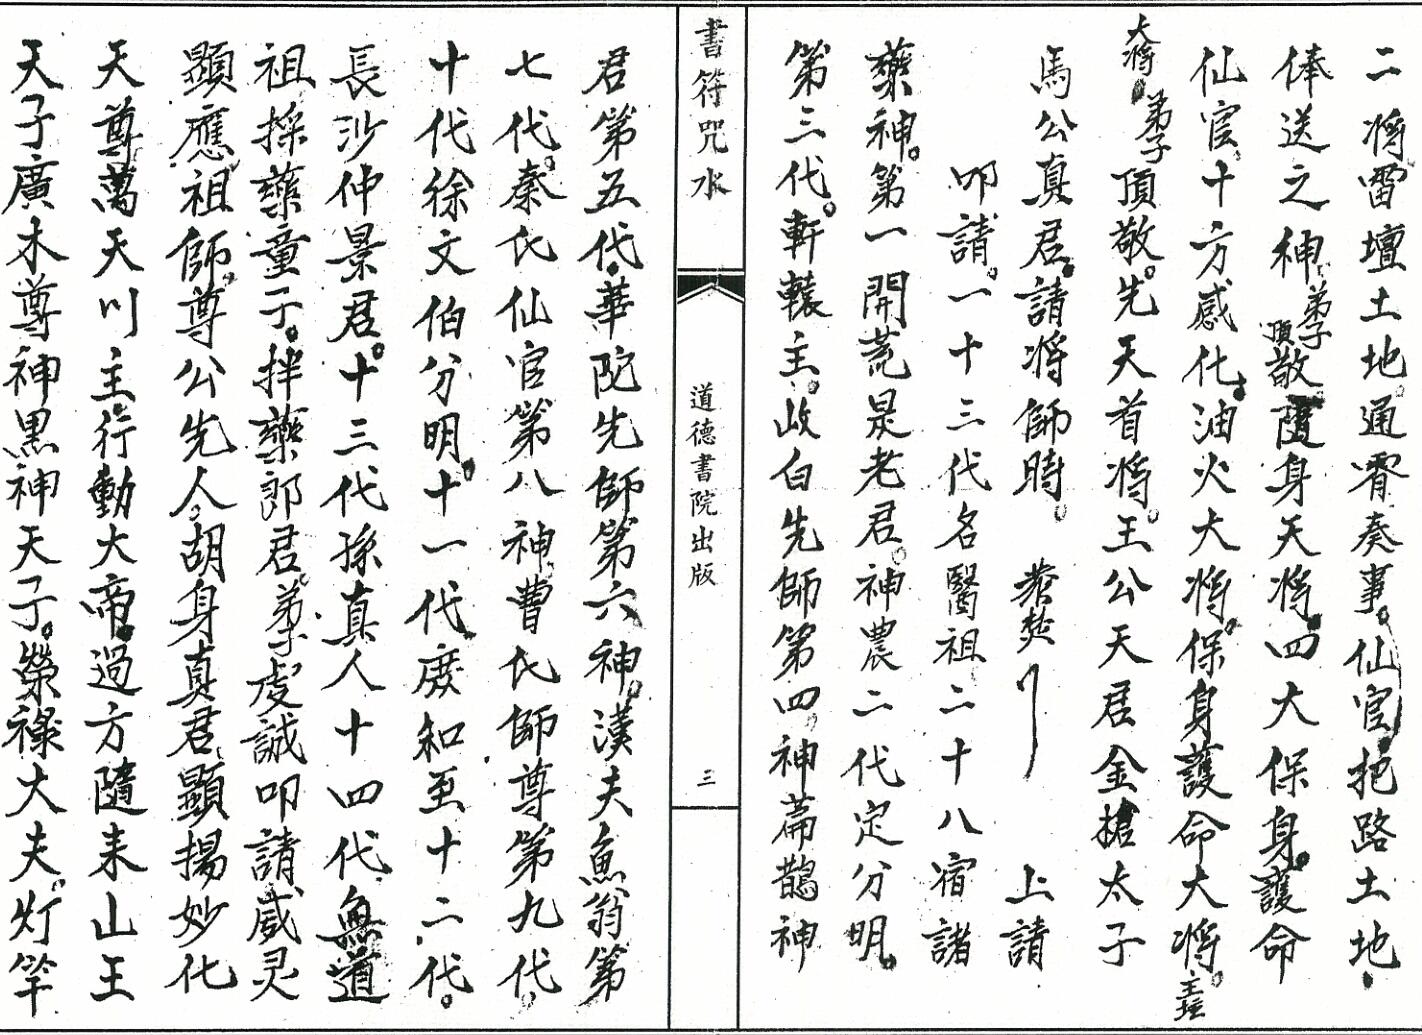 二將雷壇土地。通霄奏事。仙官。把路土地。
俸送之神。弟子頂敬隨身天將。四大保身。護命
仙官。十方感化。油火大將。保身護命大將。主壇
大將。弟子頂敬。先天首將。王公天君金槍太子
馬公真君。請將師時。 上請
叩請。一十三代名醫祖二十八宿諸
藥神。第一開荒是老君。神農二代定分明。
第三代。軒轅主。岐白先師第四。神萹鵲神
書符咒水
道德書院出版
三
君第五代。華陀先師第六神。漢夫魚翁第
七代。秦氏仙官第八神。曹氏師尊第九代。
十代徐文伯分明。十一代庶知至十二代。
長沙仲景君。十三代孫真人十四代無道
祖採藥童子。拌藥郎君弟子虔誠叩請威灵
顯應祖師。尊公先人。胡身真君。顯揚妙化
天尊萬天川主。行動大帝。過方隨来山王
天子廣木尊神黑神天子。榮祿大夫。灯竿